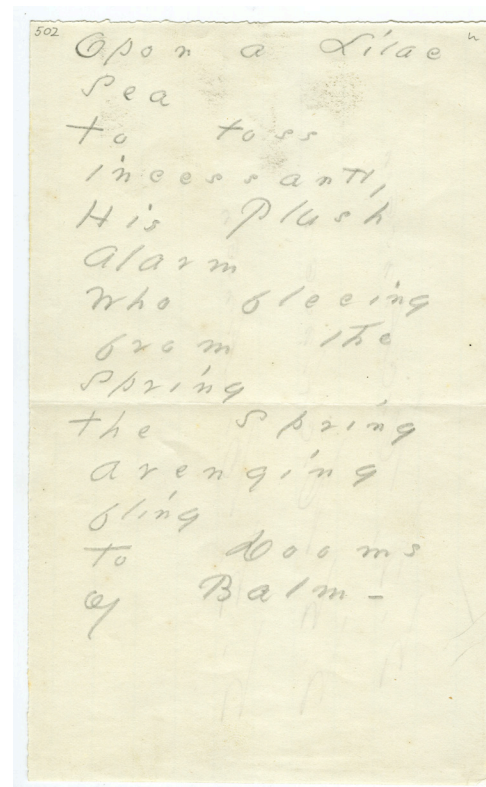 502
Opon a Lilac
Sea
to toss
incessantly
His Plush
Alarm
Who fleeing
from the
Spring
the Spring
avenging
fling
to Dooms
of Balm –